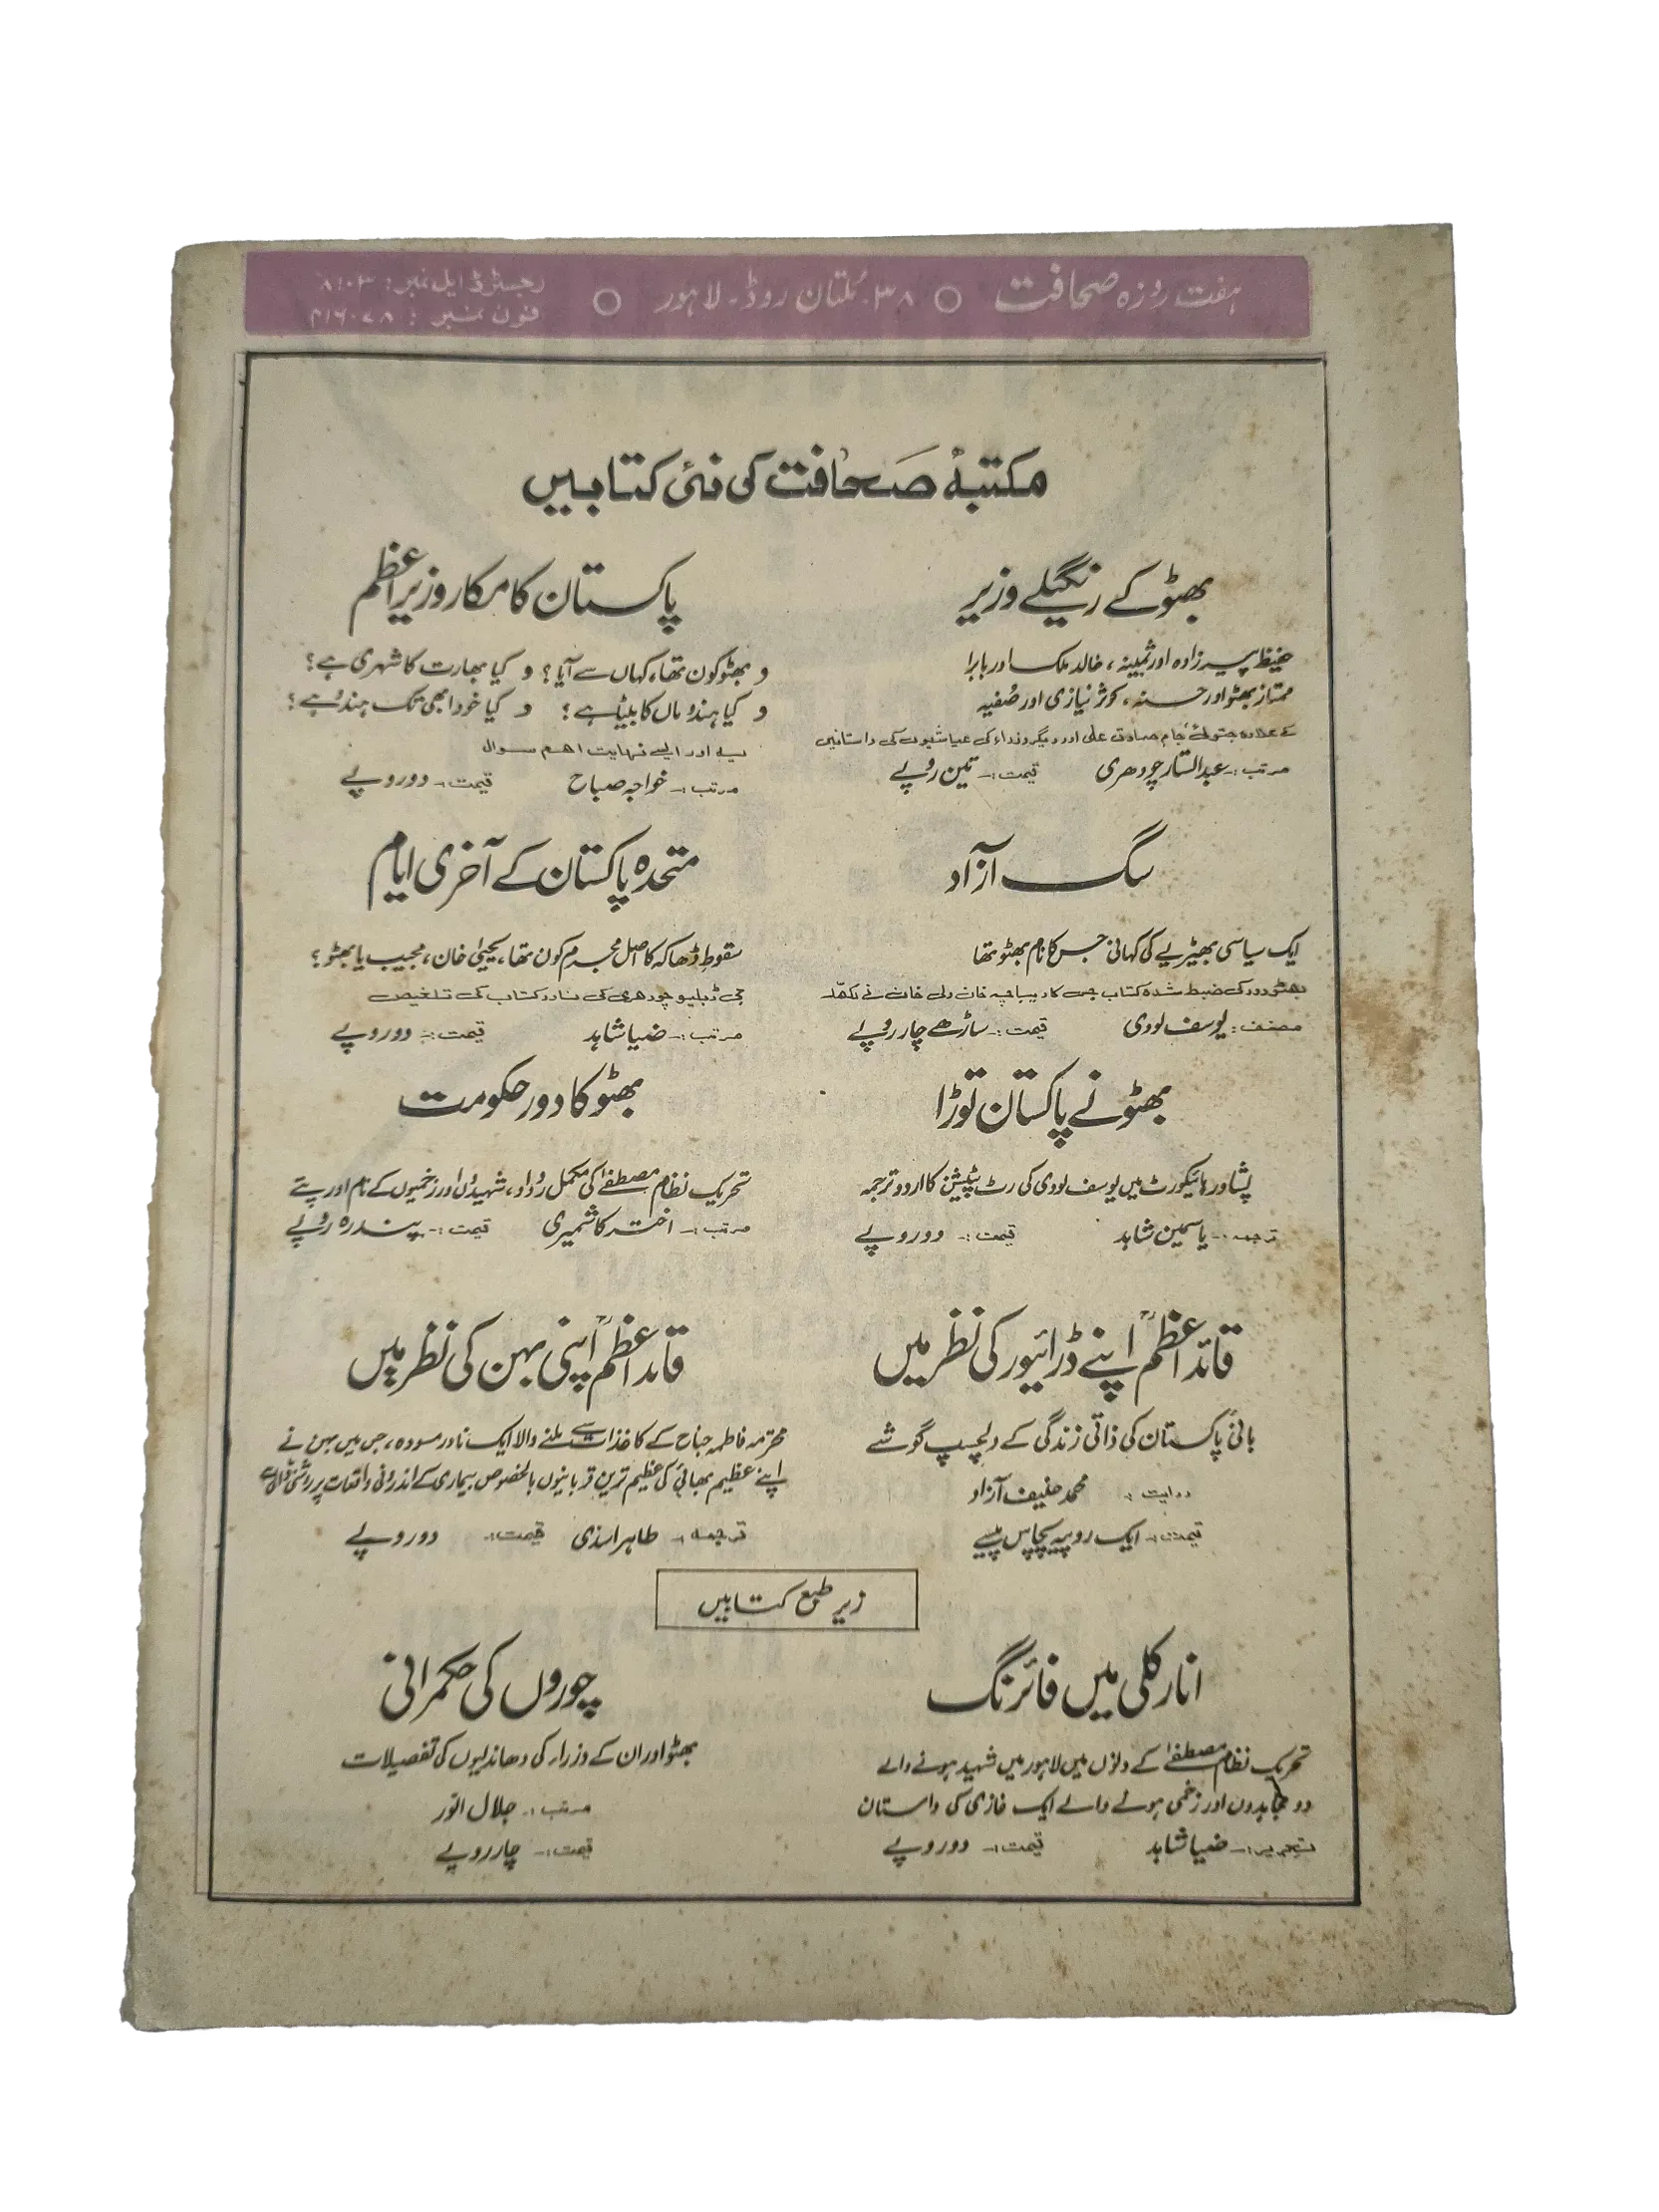 ہفت روزہ صحافت ○ ۳۸۔ مُلتان روڈ۔ لاہور ○
رجسٹرڈ ایل نمبر: ۸۱۰۳
فون نمبر :
مکتبۂ صحافت کی نئی کتابیں
بھٹو کے رنگیلے وزیر
حفیظ پیرزادہ اور ثمینہ، خالد ملک اور بابرا
ممتاز بھٹو اور حسنہ، کوثر نیازی اور صُفیہ
کے علاوہ جتوئی، جام صادق علی اور دیگر وزراء کی عیاشیوں کی داستانیں
مرتب:۔ عبدالستار چودھری قیمت:۔ تین روپے
پاکستان کا مکار وزیراعظم
و بھٹو کون تھا، کہاں سے آیا؟ و کیا بھارت کا شہری ہے؟
و کیا ہندو ماں کا بیٹا ہے؟ و کیا خود ابھی تک ہندو ہے؟
یہ اور ایسے نہایت اہم سوال
مرتب:۔ خواجہ صباح قیمت:۔ دو روپے
سگ آزاد
ایک سیاسی بھیڑیے کی کہانی جس کا نام بھٹو تھا
بھٹو دور کی ضبط شدہ کتاب جس کا دیباچہ خان ولی خان نے لکھا
مصنف: یوسف لودی قیمت:۔ ساڑھے چار روپے
متحدہ پاکستان کے آخری ایام
سقوطِ ڈھاکہ کا اصل مجرم کون تھا، یحییٰ خان، مجیب یا بھٹو؟
جی ڈبلیو چودھری کی نادر کتاب کی تلخیص
مرتب:۔ ضیا شاہد قیمت:۔ دو روپے
بھٹو نے پاکستان توڑا
پشاور ہائیکورٹ میں یوسف لودی کی رٹ پٹیشن کا اردو ترجمہ
ترجمہ:۔ یاسمین شاہد قیمت:۔ دو روپے
بھٹو کا دور حکومت
تحریک نظام مصطفےٰ کی مکمل رُوداد، شہیدوں اور زخمیوں کے نام اور پتے
مرتب:۔ اختر کاشمیری قیمت:۔ پندرہ روپے
قائداعظمؒ اپنے ڈرائیور کی نظر میں
بانئ پاکستان کی ذاتی زندگی کے دلچسپ گوشے
روایت :۔ محمد حنیف آزاد
قیمت:۔ ایک روپیہ پچاس پیسے
قائداعظمؒ اپنی بہن کی نظر میں
محترمہ فاطمہ جناح کے کاغذات سے ملنے والا ایک نادر مسودہ، جس میں بہن نے
اپنے عظیم بھائی کی عظیم ترین قربانیوں بالخصوص بیماری کے اندرونی واقعات پر روشنی ڈالی ہے
ترجمہ:۔ طاہر اسدی قیمت:۔ دو روپے
زیر طبع کتابیں
انارکلی میں فائرنگ
تحریک نظام مصطفےٰ کے دنوں میں لاہور میں شہید ہونے والے
دو مجاہدوں اور زخمی ہونے والے ایک غازی کی داستان
تحریر:۔ ضیا شاہد قیمت:۔ دو روپے
چوروں کی حکمرانی
بھٹو اور ان کے وزراء کی دھاندلیوں کی تفصیلات
مرتب:۔ جلال انور
قیمت:۔ چار روپے